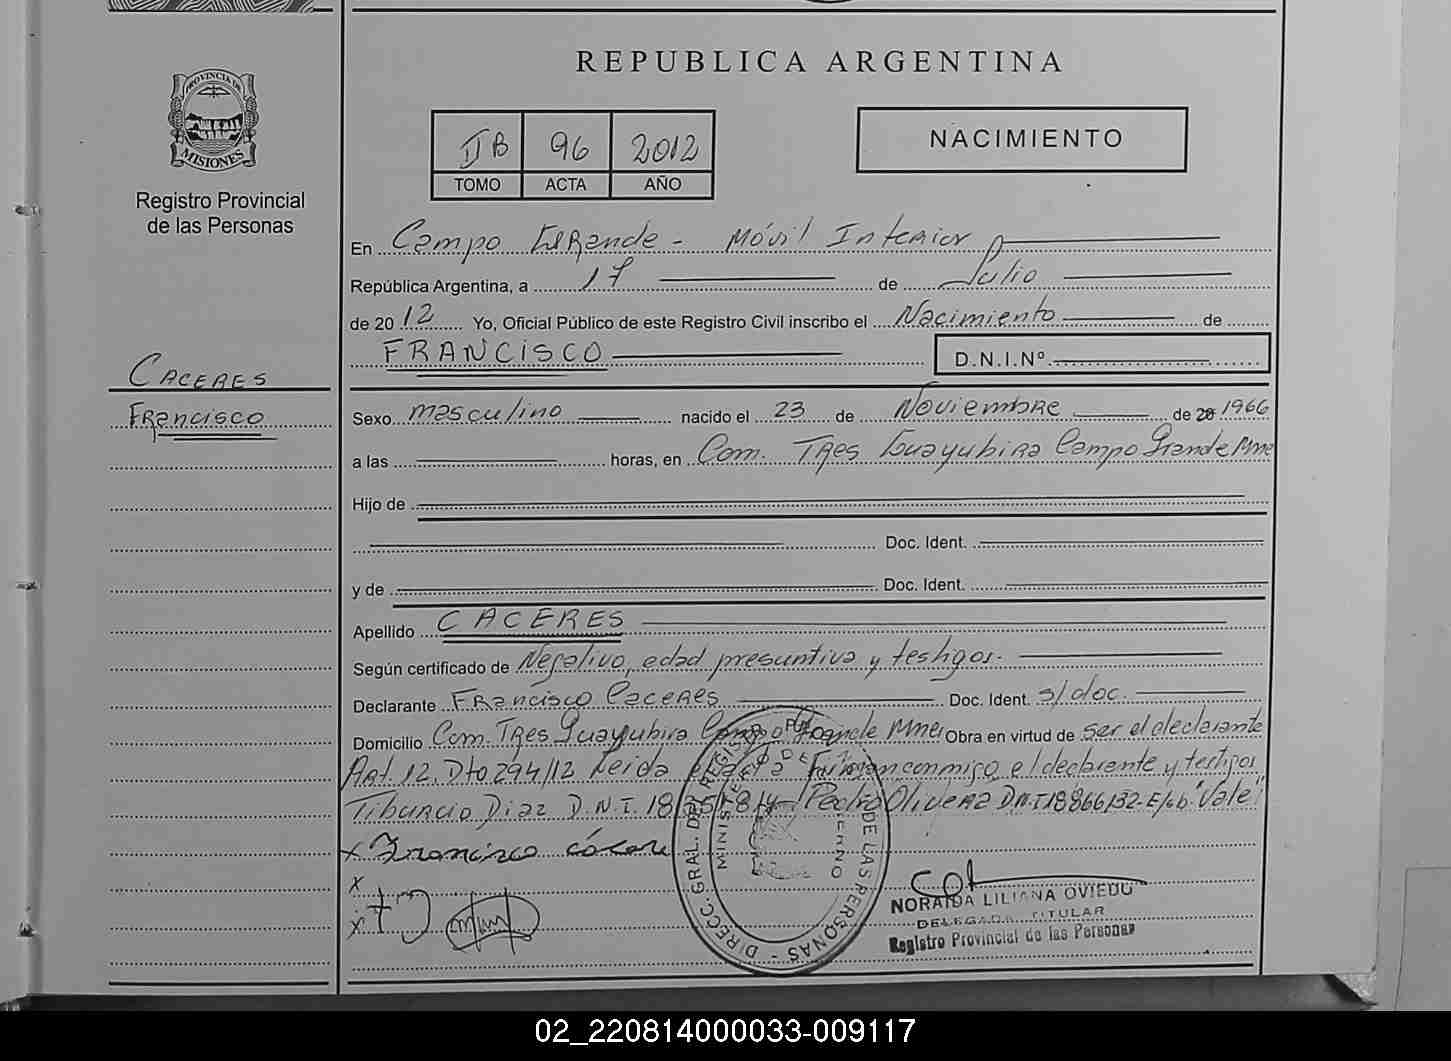 REPUBLICA ARGENTINA
PROVINCIA DE
MISIONES
Registro Provincial
de las Personas
II B 96 2012
TOMO ACTA AÑO
NACIMIENTO
En Campo Grande - Móvil Interior
República Argentina, a 17 de Julio
de 2012 Yo, Oficial Público de este Registro Civil inscribo el Nacimiento de
FRANCISCO D.N.I.Nº
CACERES
Francisco
Sexo masculino nacido el 23 de Noviembre de 20 1966
a las horas, en Com. Tres Guayubira Campo Grande Mnes
Hijo de
Doc. Ident.
y de Doc. Ident.
Apellido CACERES
Según certificado de Negativo, edad presuntiva y testigos.
Declarante Francisco Caceres Doc. Ident. s/doc.
Domicilio Com. Tres Guayubira Campo Grande Mnes Obra en virtud de ser el declarante
Art. 12. Dto 294/12 Leida el acta Firman conmigo el declarante y testigos
Tiburcio Diaz D.N.I. Pedro Olivera D.N.I 18866132 - "Vale"
x Francisco
x
x
DIRECC. GRAL. DEL REGISTRO DE LAS PERSONAS
MINISTERIO DE GOBIERNO
NORAIDA LILIANA OVIEDO
DELEGADA TITULAR
Registro Provincial de las Personas
02_220814000033-009117